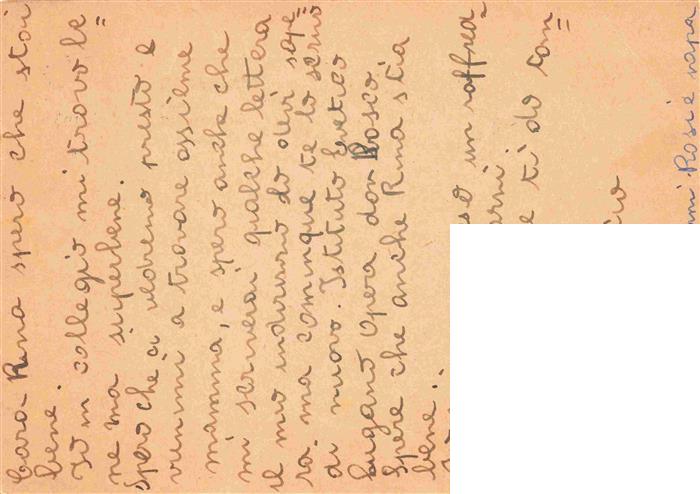 Cara Rina spero che stai
bene.
Io in collegio mi trovo be=
ne ma superbene.
Spero che ci vedremo presto e
venimi a trovare assieme
mamma, e spero anche che
mi scriverai qualche lettera
il mio indirizzo do devi sape=
ra. ma cominque te lo scrivo
di nuovo. Istituto Elvetico
Lugano Opera don Bosco.
Spere che anche Rina stia
bene..
so un raffrea=
arni
e ti do tan=
Rosi e papa